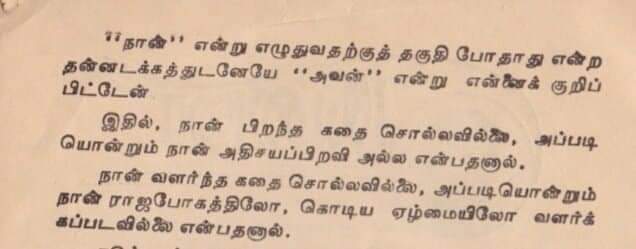 ‘‘நான்’’ என்று எழுதுவதற்குத் தகுதி போதாது என்ற
தன்னடக்கத்துடனேயே ‘‘அவன்’’ என்று என்னைக் குறிப்
பிட்டேன்
இதில், நான் பிறந்த கதை சொல்லவில்லை, அப்படி
யொன்றும் நான் அதிசயப்பிறவி அல்ல என்பதனால்.
நான் வளர்ந்த கதை சொல்லவில்லை, அப்படியொன்றும்
நான் ராஜபோகத்திலோ, கொடிய ஏழ்மையிலோ வளர்க்
கப்படவில்லை என்பதனால்.